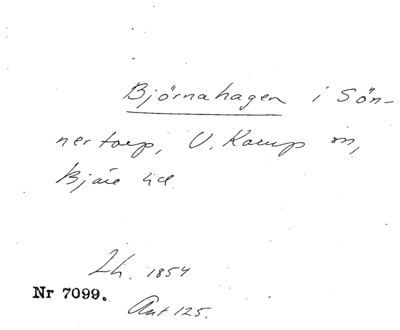 Björnahagen i Sön-
nertorp, V. Karup sn,
Bjäre hd.
Lh. 1854
Nr 7099.
Ant 125.